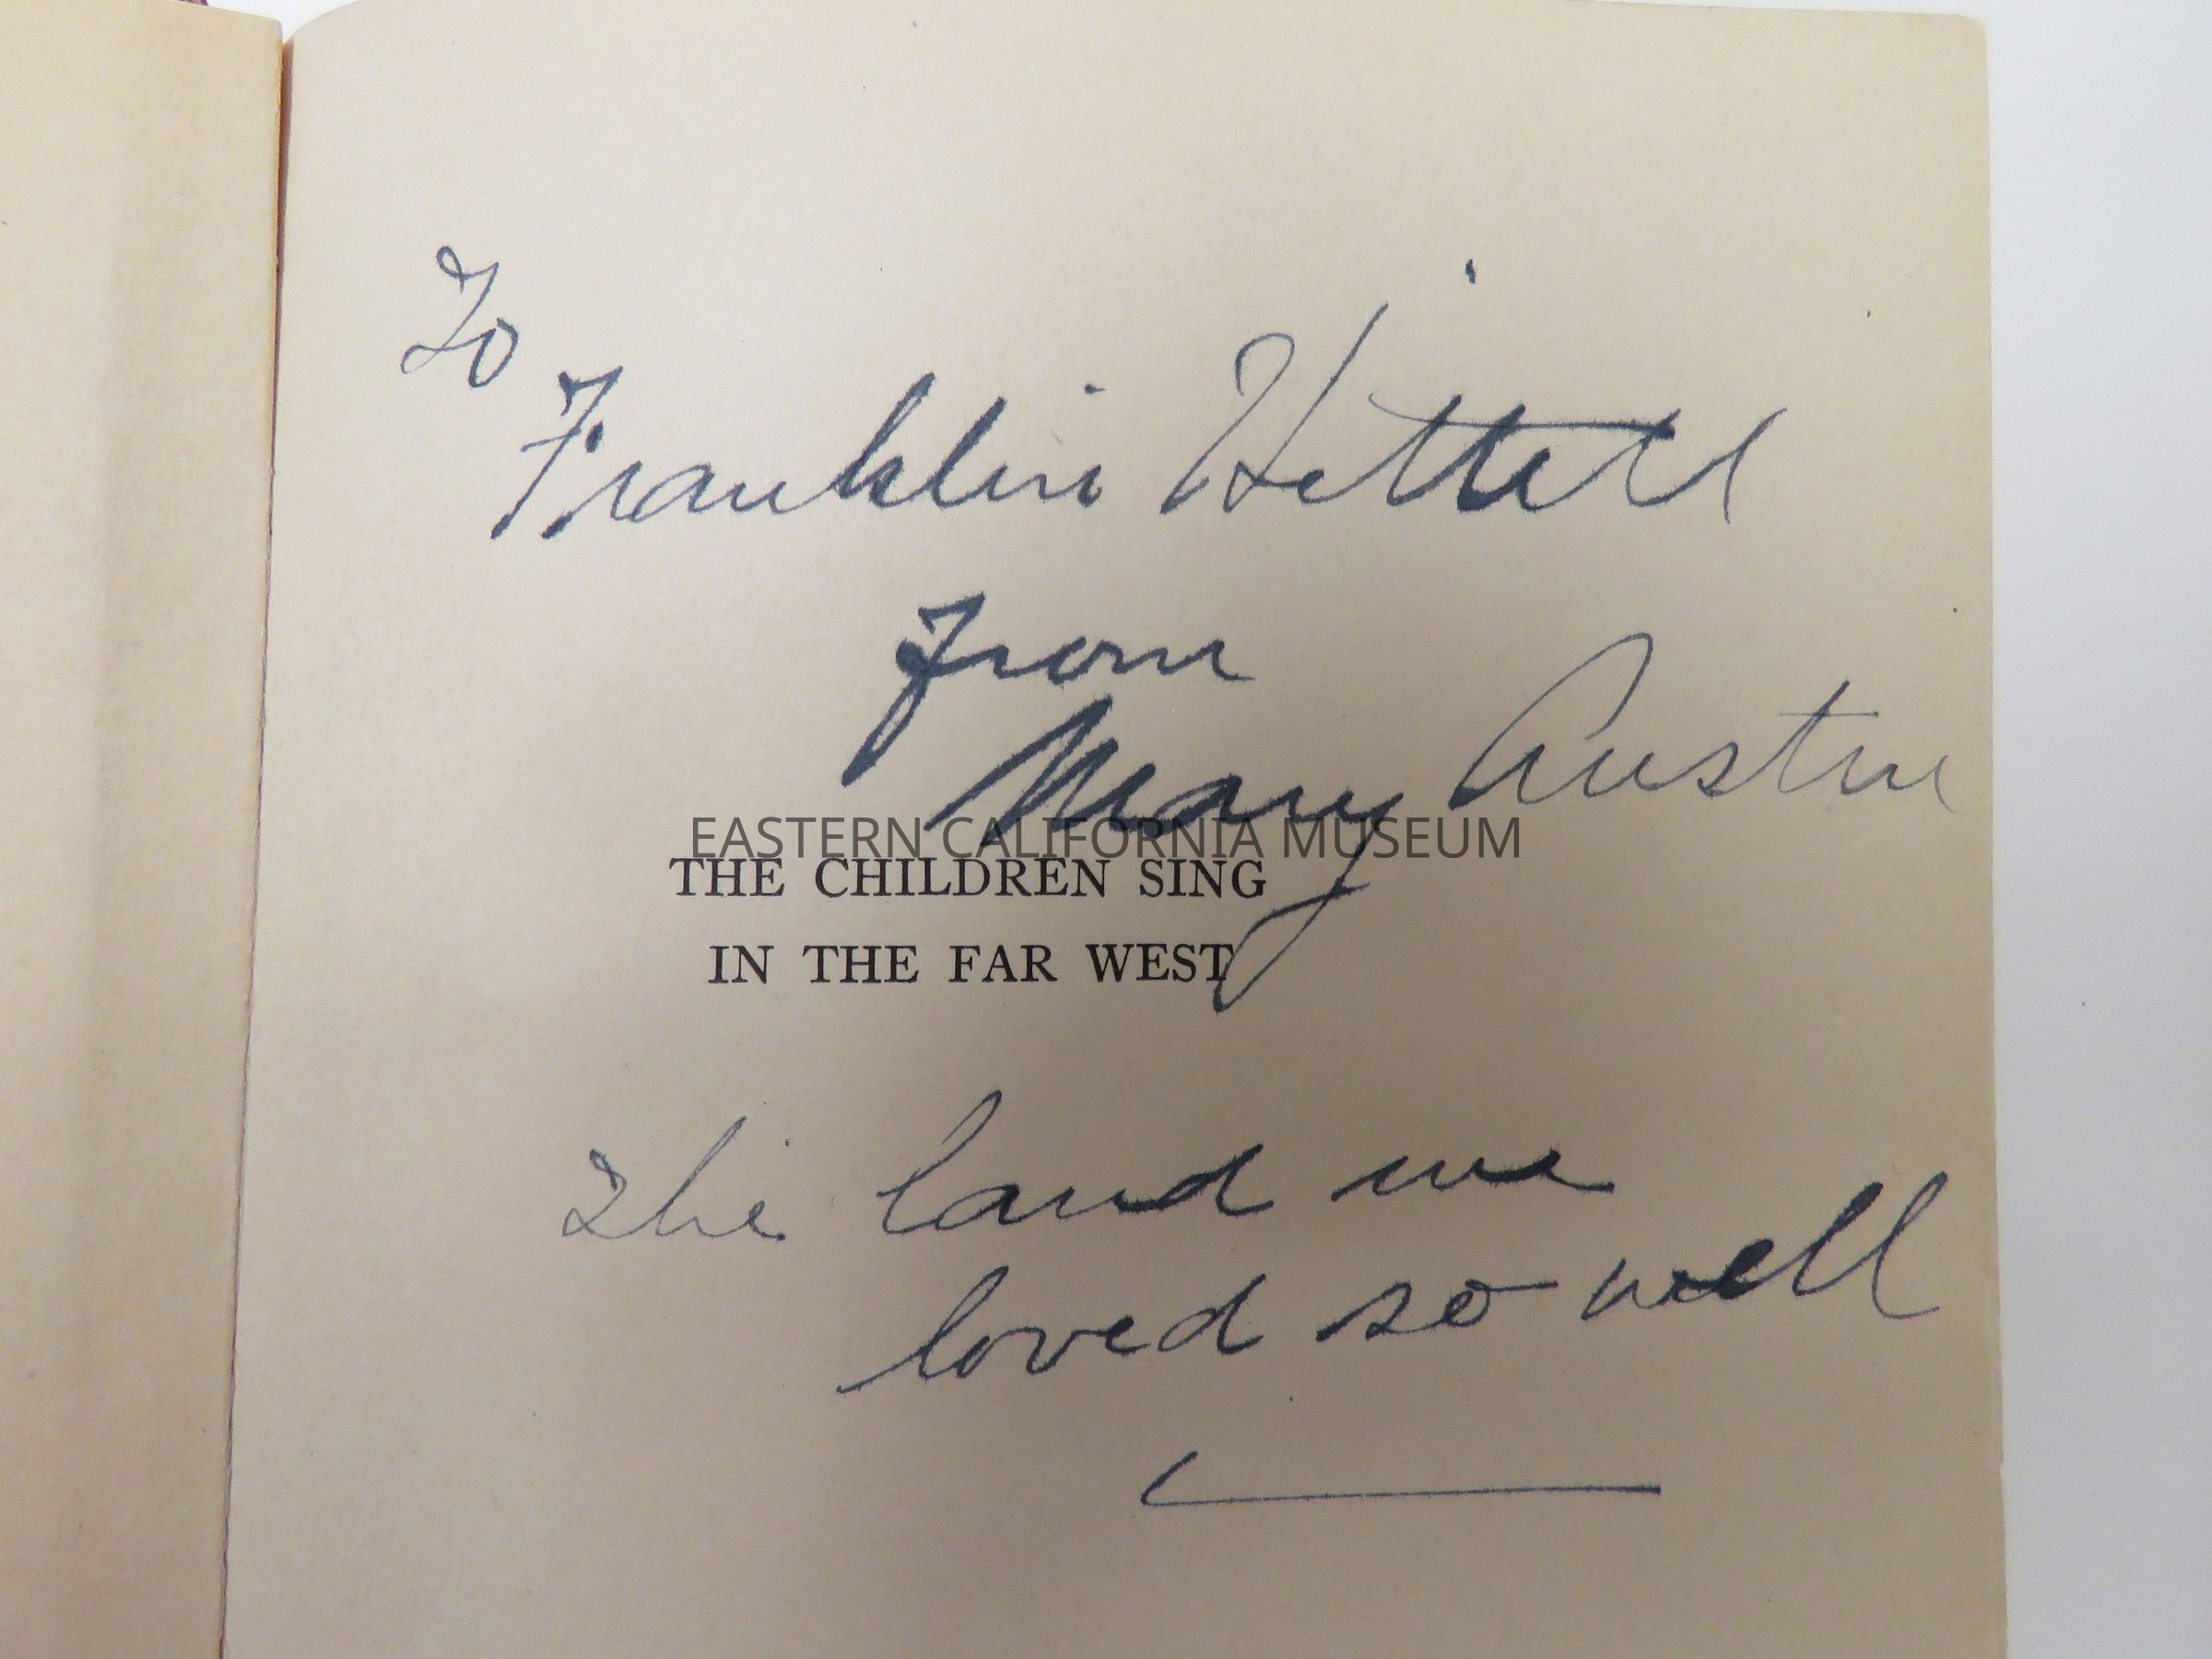 To
Franklin Hittell
from
Mary Austin
EASTERN CALIFORNIA MUSEUM
THE CHILDREN SING
IN THE FAR WEST
The land we
loved so well